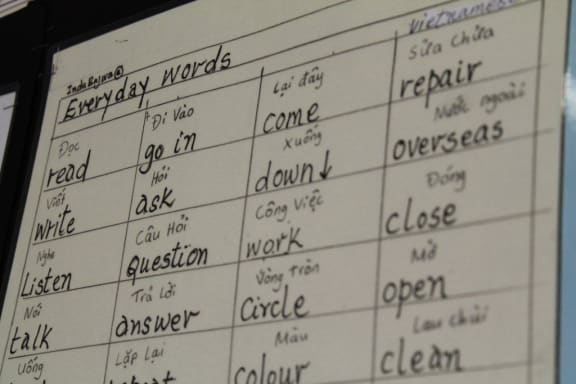 Vietnamese
Everyday words
Đọc
read
Đi Vào
go in
Lại đây
come
Sửa Chữa
repair
Viết
write
Hỏi
ask
Xuống
down↓
Nước ngoài
overseas
Nghe
Listen
Câu Hỏi
Question
Công Việc
work
Đóng
close
Nói
talk
Trả Lời
answer
Vòng Tròn
Circle
Mở
open
Uống
Lặp Lại
Màu
colour
Lau chùi
clean